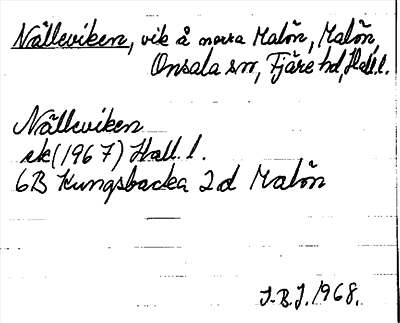 Nälleviken, vik å norra Malön, Malön,
Onsala sn, Fjäre hd, Hall.l.
Nälleviken
ek (1967) Hall. l.
6B Kungsbacka 2d Malön
J.B.J. 1968.